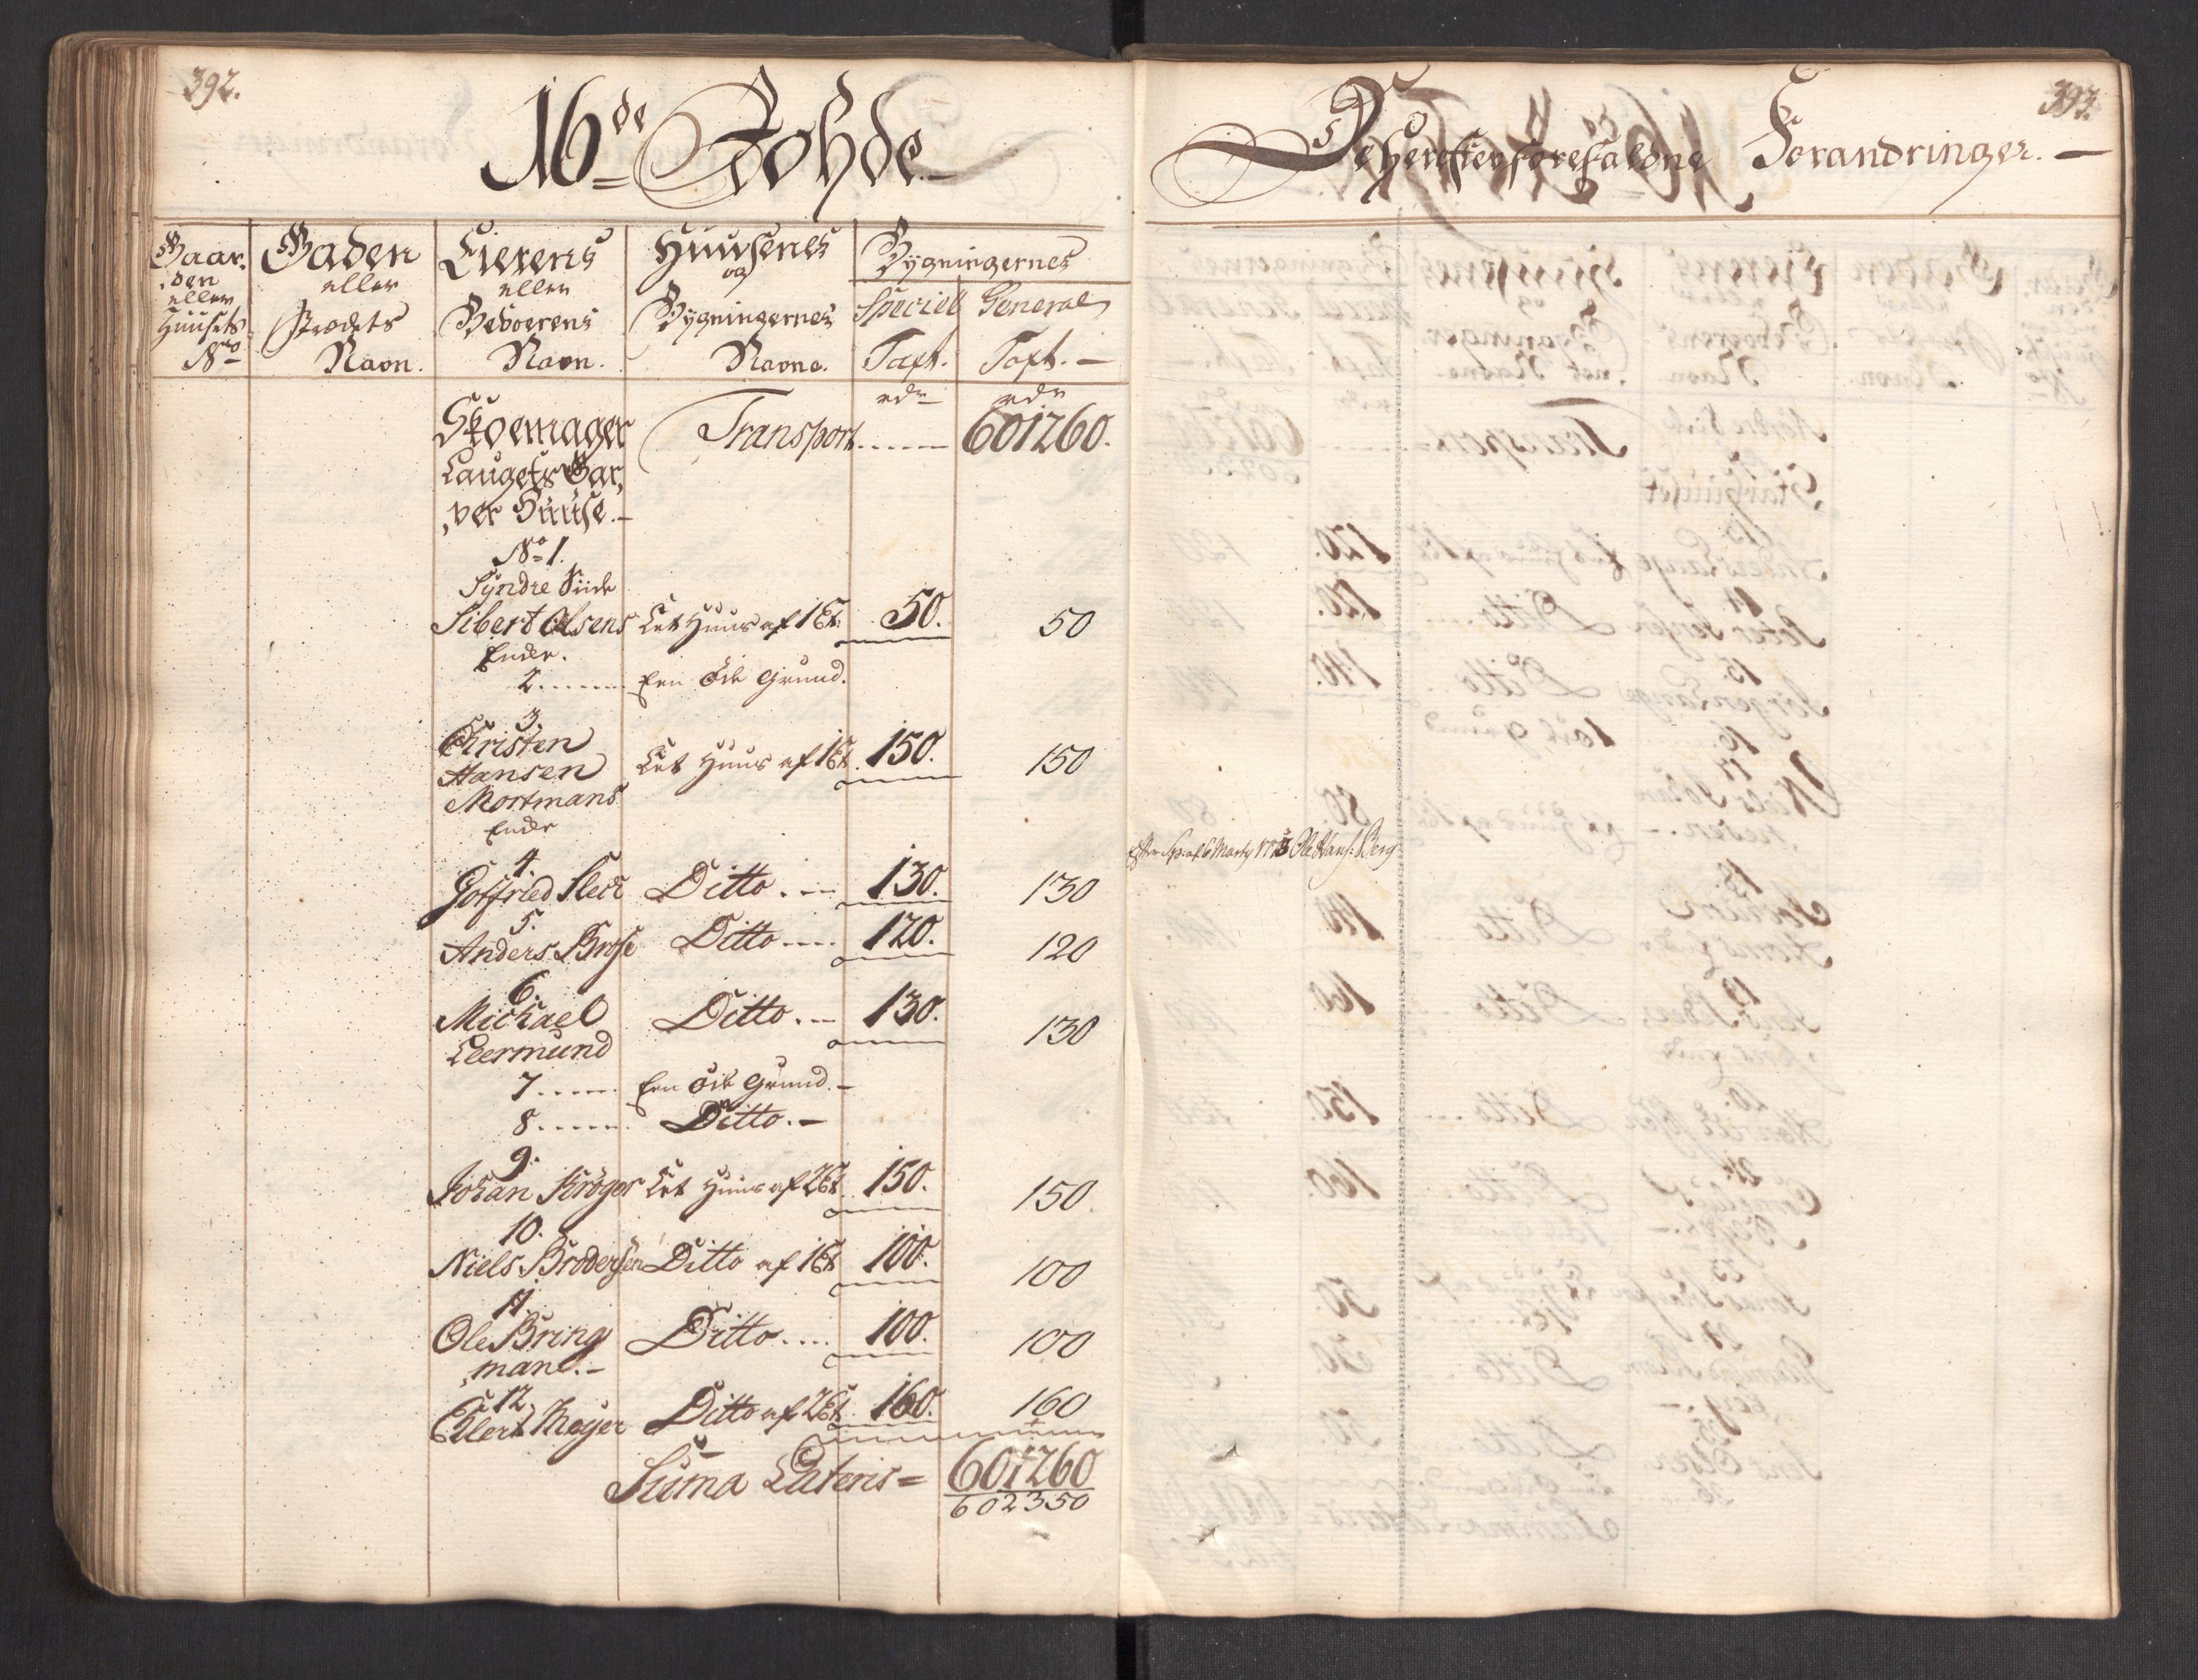 392.
16de Rohde
Gaar,
den
eller
Huusets
No
Gaden
eller
Strædets
Navn.
Eierens
eller
Beboerens
Navn.
Huusenes
og
Bygningernes
Navne.
Bygningernes
Speciel General
Taxt. Taxt. —
rdr rdr
Skoemager Transport ...... 601260.
Laugets Gar,
,ver Huuse. —
No 1.
Syndre Siide
Sibert Olsens Let Huus af 1 Et. 50. 50
Enke.
2 ....... Een öde Grund.
3.
Christen
Hansen Let Huus af 1 Et. 150. 150
Mortmans
Enke
4.
Gotfried Ditto. — 130. 130
5.
Anders Brose Ditto .... 120. 120
6.
Michael Ditto. — 130. 130
Leermund
7 ...... Een öde Grund. —
8 ...... Ditto. —
9.
Johan Kröger Let Huus af 2 Et. 150. 150.
10.
Niels Brodersen Ditto af 1 Et. 100. 100
11.
Ole Bring Ditto .... 100. 100
,mand. —
12.
Eilert Meyer Ditto af 2 Et. 160. 160
Suma Lateris = 601260
602350
393.
De herefter forefaldne Forandringer. —
Efter Sk: af 6 Marty 1773 Ole Hans: Berg